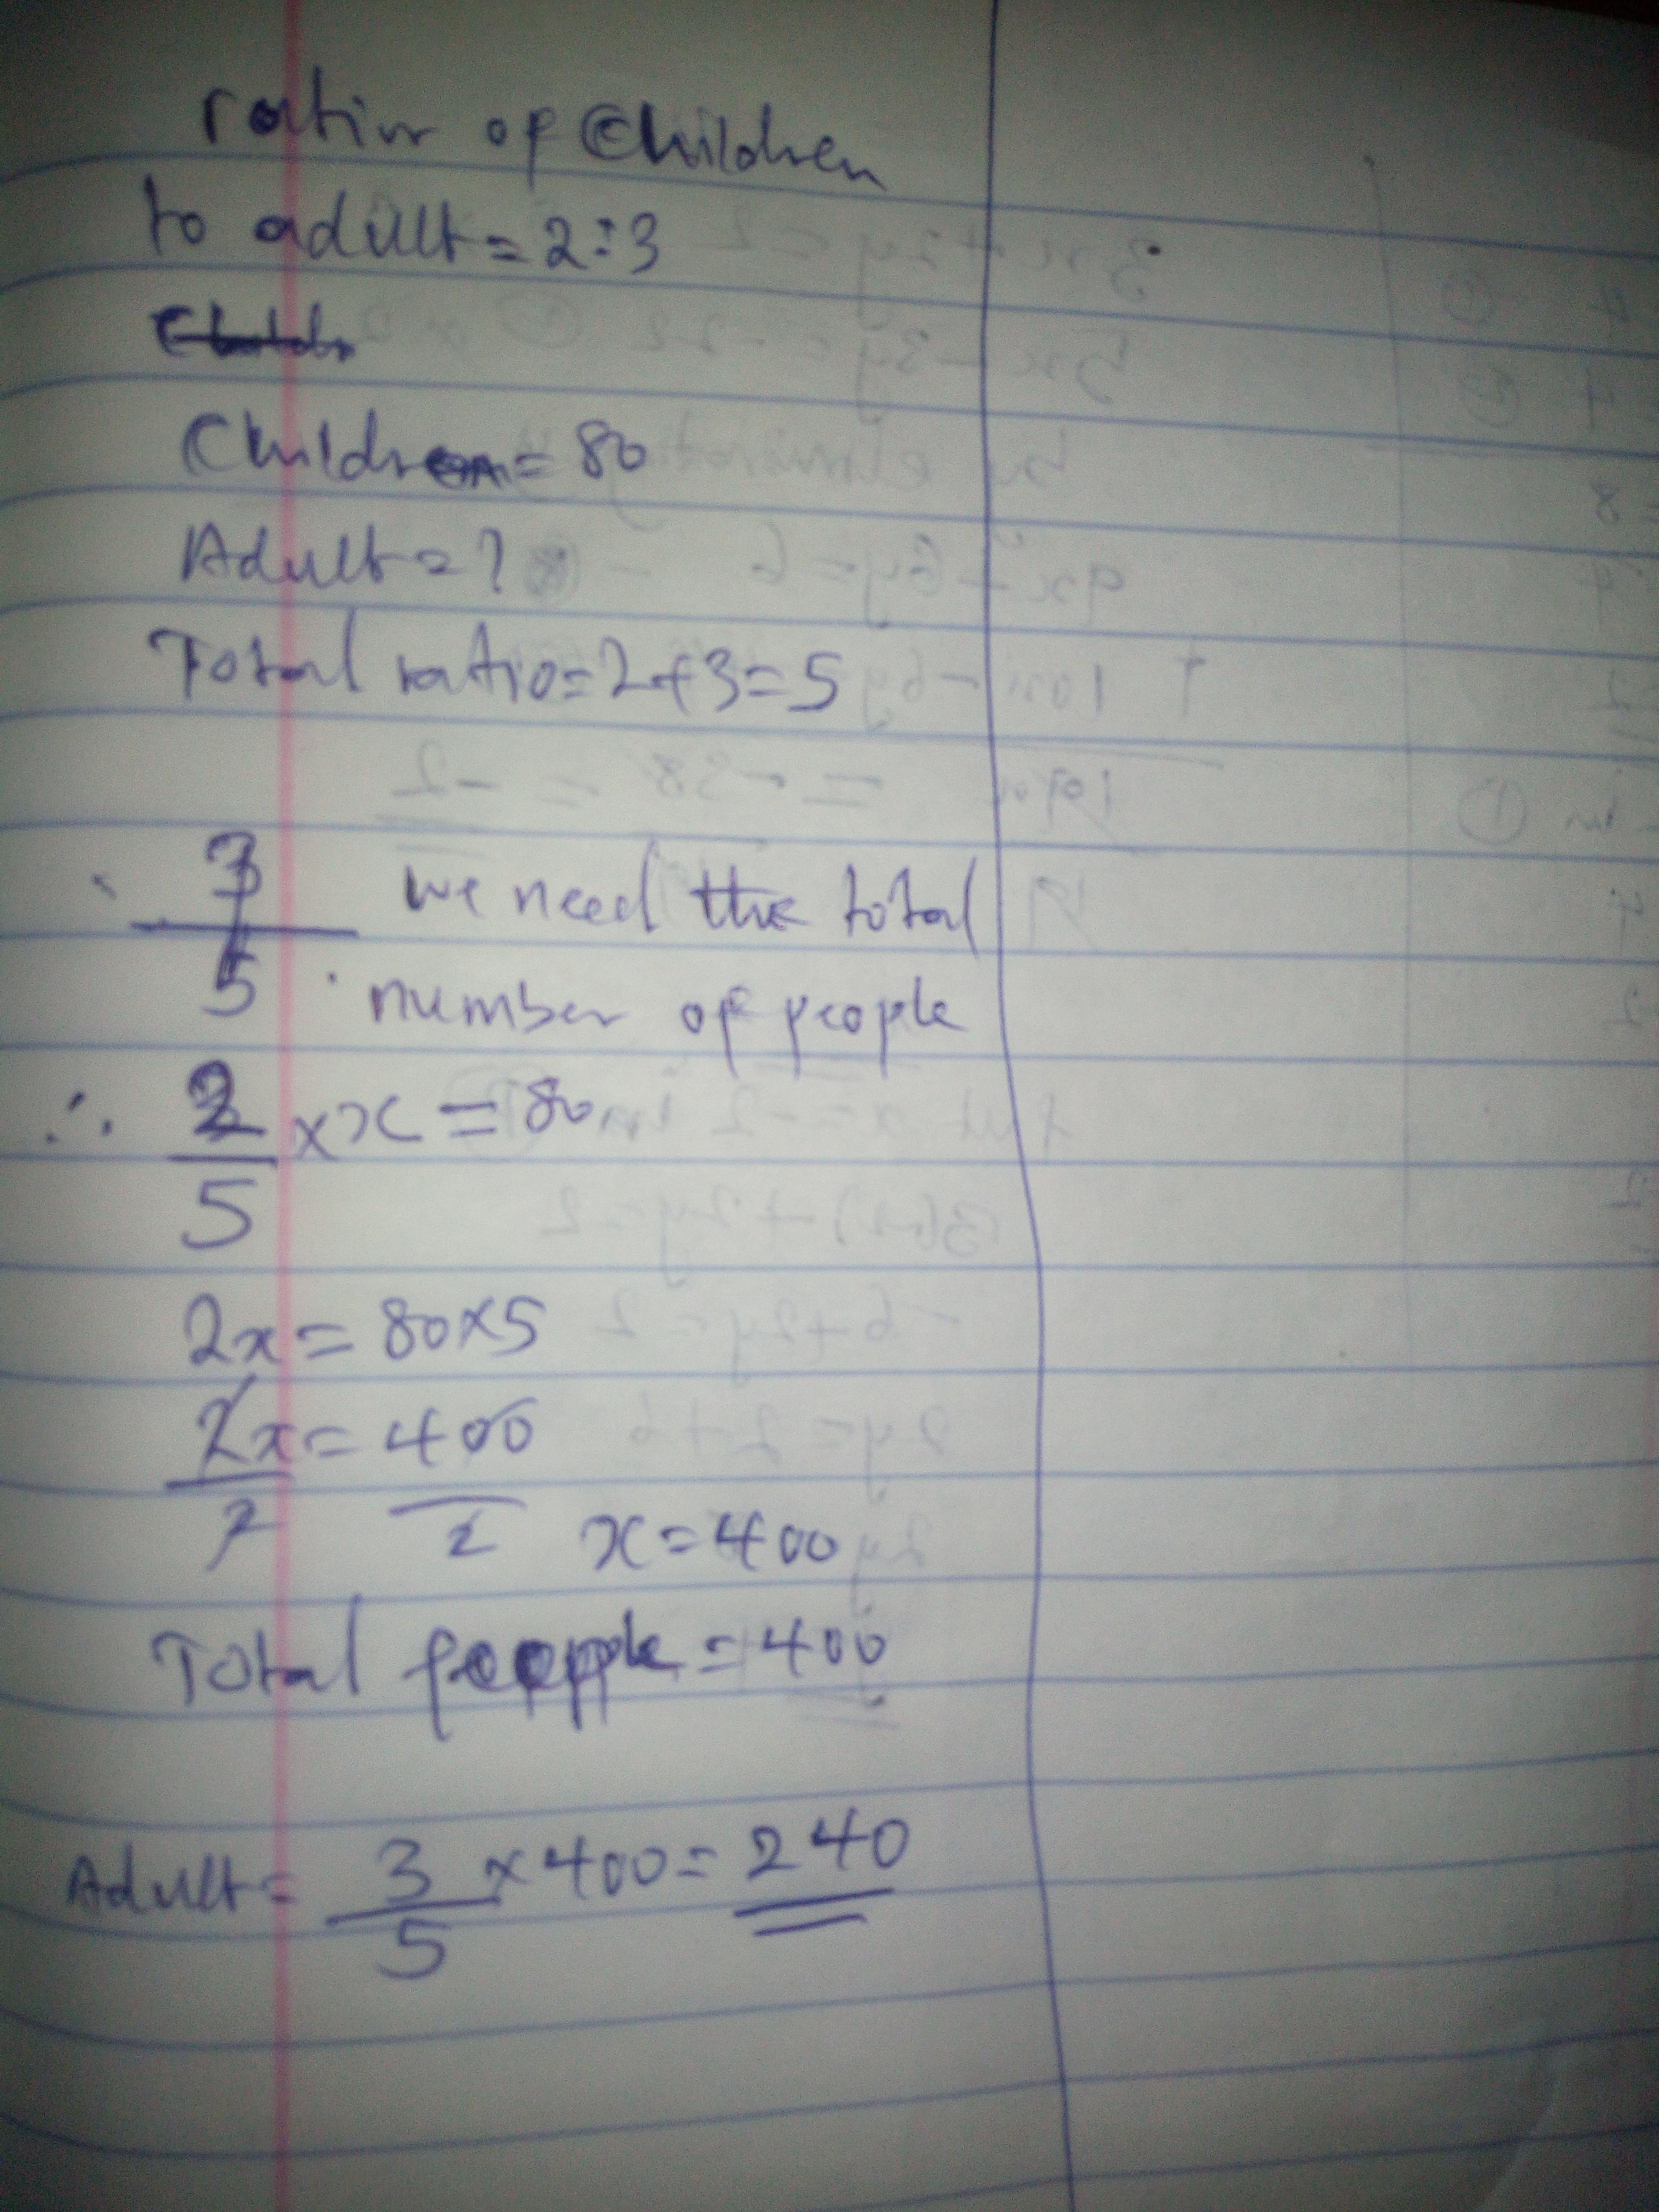 ratio of Children
to adult = 2:3
Children = 80
Adult = ?
Total ratio = 2+3=5
3/5 we need the total
number of people
∴ 2/5 × x = 80
2x = 80×5
2x/2 = 400/2 x = 400
Total people = 400
Adult = 3/5 × 400 = 240